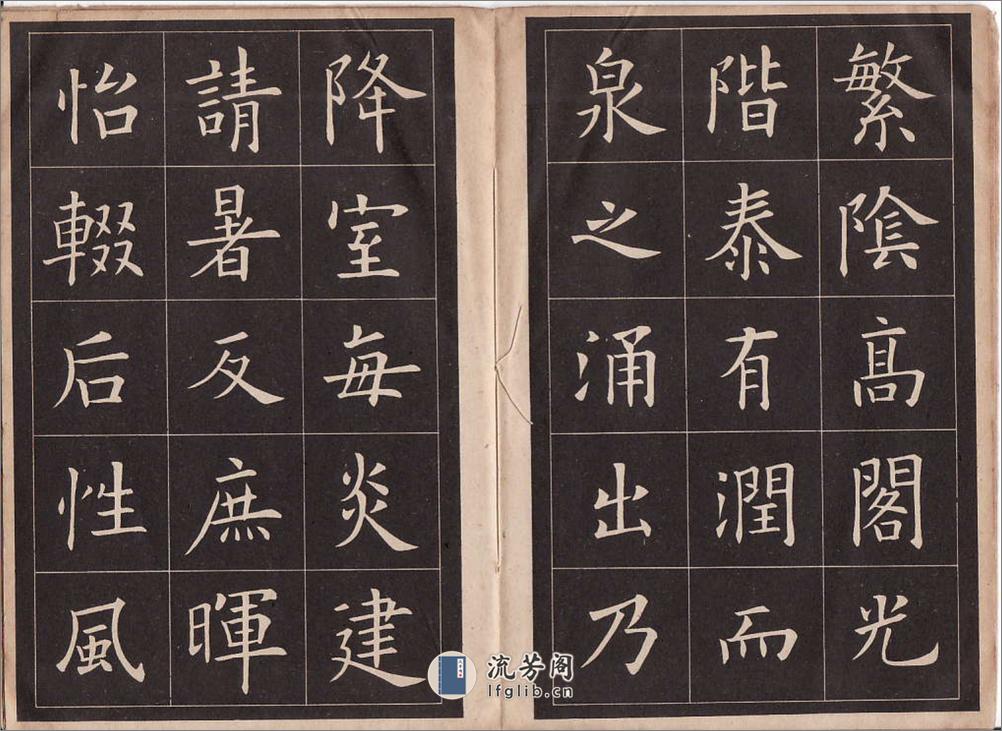 繁陰高閣光
階泰有潤而
泉之涌出乃
降室每炎建
請暑反庶暉
怡輟后性風
流芳阁
lfglib.cn